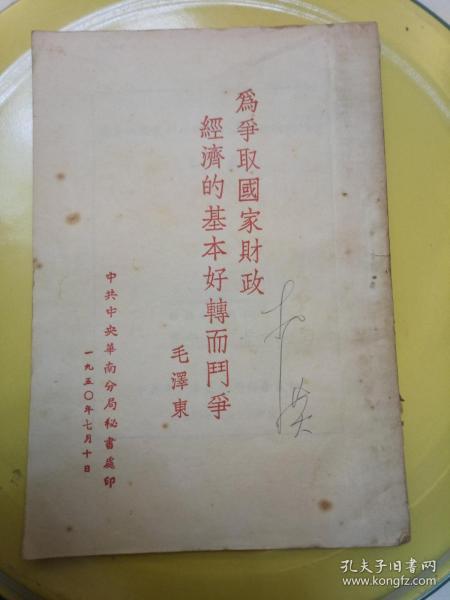 爲爭取國家財政
經濟的基本好轉而鬥爭
毛澤東
中共中央華南分局秘書處印
一九五〇年七月十日
孔夫子旧书网
www.kongfz.com